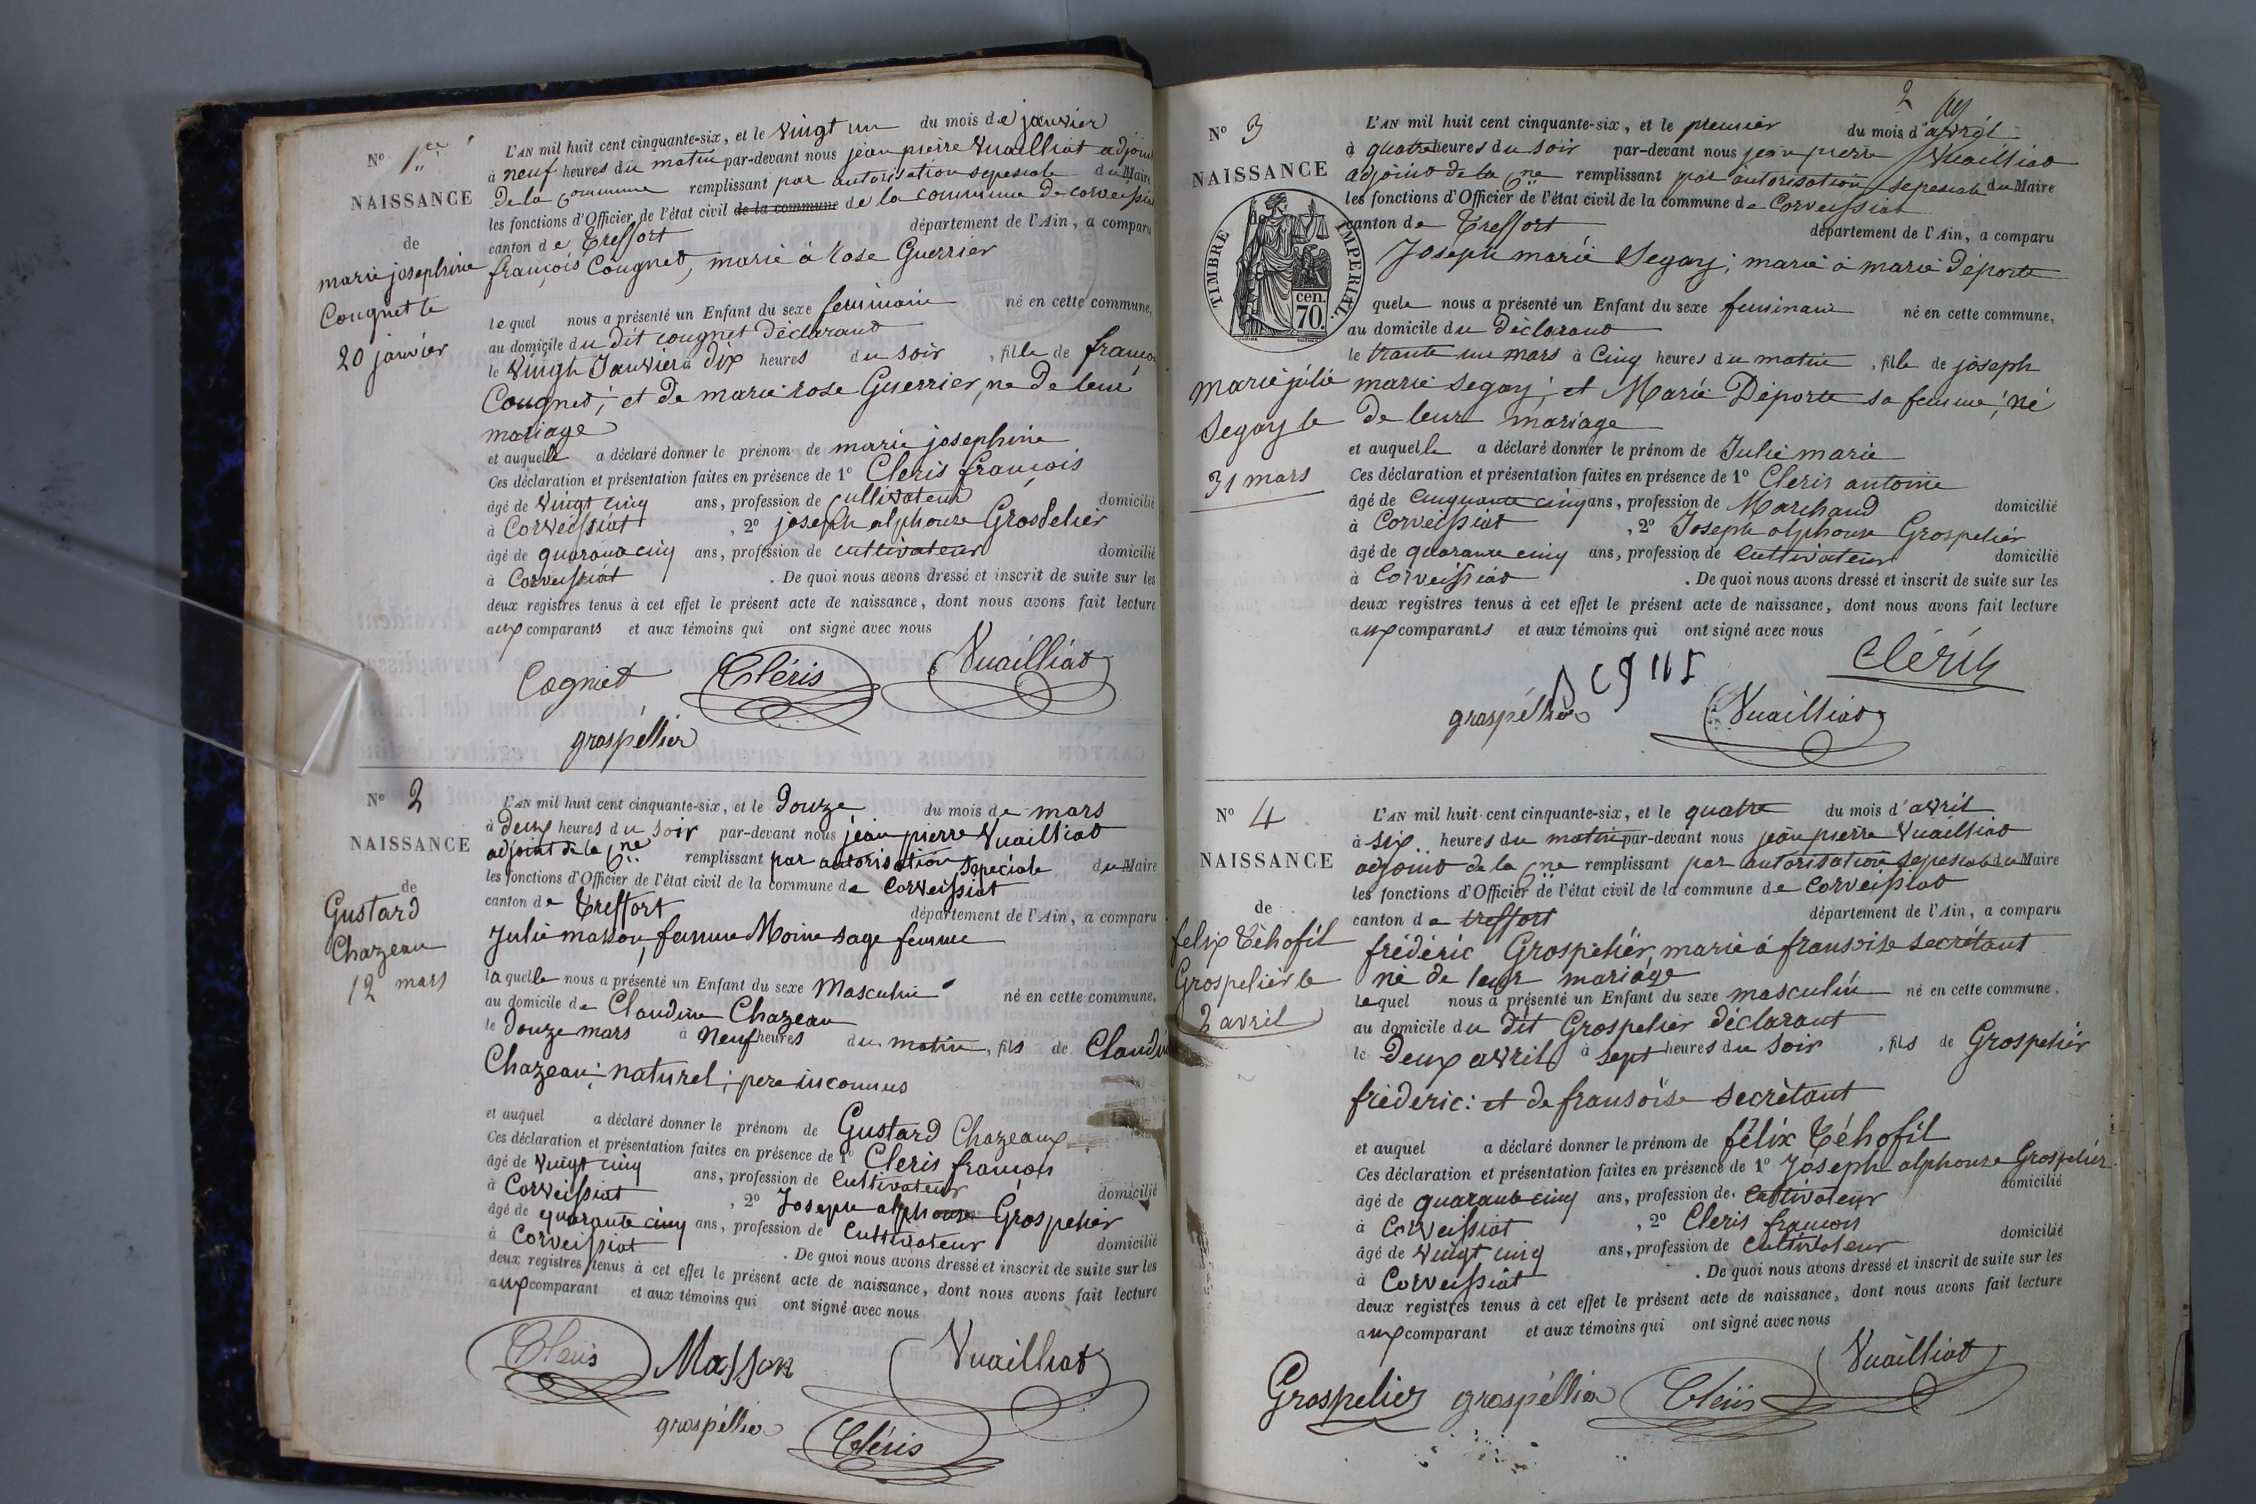 N° 1er
NAISSANCE
de
marie josephine
Cougnet le
20 janvier
L'AN mil huit cent cinquante-six, et le vingt un du mois de janvier
à neuf heures du matin par-devant nous jean pierre Vuailliat adjoint
de la commune remplissant par autorisation sepesciale du Maire
les fonctions d'Officier de l'état civil de la commune de la commune de corveissiat
canton de Treffort département de l'Ain, a comparu
françois Cougnet, marié à rose Guerrier
lequel nous a présenté un Enfant du sexe feminain né en cette commune,
au domicile du dit cougnet déclarant
le vingt Janvier à dix heures du soir, fille de françois
Cougnet; et de marie rose Guerrier, né de leur
mariage
et auquelle a déclaré donner le prénom de marie josephine
Ces déclaration et présentation faites en présence de 1° Cleris françois
âgé de vingt cinq ans, profession de cultivateur domicilié
à Corveissiat, 2° joseph alphonse Grospelier
âgé de quarante cinq ans, profession de cultivateur domicilié
à Corveissiat. De quoi nous avons dressé et inscrit de suite sur les
deux registres tenus à cet effet le présent acte de naissance, dont nous avons fait lecture
aux comparants et aux témoins qui ont signé avec nous
Cogniet Cléris Vuailliat
grospéllier
N° 2
NAISSANCE
de
Gustard
Chazeau
12 mars
L'AN mil huit cent cinquante-six, et le Douze du mois de mars
à Deux heures du soir par-devant nous jean pierre Vuailliat
adjoint de la Cne remplissant par autorisation spéciale du Maire
les fonctions d'Officier de l'état civil de la commune de Corveissiat
canton de Treffort département de l'Ain, a comparu
Julie masson, femme Moine sage femme
laquelle nous a présenté un Enfant du sexe Masculin né en cette commune,
au domicile de Claudine Chazeau
le Douze mars à Neuf heures du matin, fils de Claudine
Chazeau; naturel; pere inconnus
et auquel a déclaré donner le prénom de Gustard Chazeaux
Ces déclaration et présentation faites en présence de 1° Cleris francois
âgé de vingt cinq ans, profession de Cultivateur
à Corveissiat, 2° Joseph alphonse Grospelier domicilié
âgé de quarante cinq ans, profession de Cultivateur
à Corveissiat. domicilié
De quoi nous avons dressé et inscrit de suite sur les
deux registres tenus à cet effet le présent acte de naissance, dont nous avons fait lecture
aux comparant et aux témoins qui ont signé avec nous
Cléris Masson Vuailliat
grospéllier Cléris
2
N° 3
NAISSANCE
TIMBRE IMPERIAL
70 cen.
marie júlié
Segay le
31 mars
L'AN mil huit cent cinquante-six, et le premier du mois d'avril
à quatre heures du soir par-devant nous jean pierre Vuailliat
adjoint de la Cne remplissant par autorisation sepesciale du Maire
les fonctions d'Officier de l'état civil de la commune de Corveissiat
canton de Treffort département de l'Ain, a comparu
Joseph marié Segay; marié à marie Déporte
quele nous a présenté un Enfant du sexe feminain né en cette commune,
au domicile du Déclarant
le trante un mars à Cinq heures du matin, fille de joseph
marie segay; et Marie Déporte sa femme; né
de leur mariage
et auquelle a déclaré donner le prénom de Julie marie
Ces déclaration et présentation faites en présence de 1° Cleris antoine
âgé de cinquante cinq ans, profession de Marchand domicilié
à Corveissiat, 2° Joseph alphonse Grospelier
âgé de quarante cinq ans, profession de Cultivateur domicilié
à Corveissiat. De quoi nous avons dressé et inscrit de suite sur les
deux registres tenus à cet effet le présent acte de naissance, dont nous avons fait lecture
aux comparants et aux témoins qui ont signé avec nous
Cléris
grospéllier Vuailliat
N° 4
NAISSANCE
de
felix Téhofil
Grospelier le
2 avril
L'AN mil huit cent cinquante-six, et le quatre du mois d'avril
à six heures du matin par-devant nous jean pierre Vuailliat
adjoint de la Cne remplissant par autorisation sepesciale du Maire
les fonctions d'Officier de l'état civil de la commune de Corveissiat
canton de treffort département de l'Ain, a comparu
frédéric Grospelier, marié à fransoise secrétant
né de leur mariage
lequel nous a présenté un Enfant du sexe masculin né en cette commune,
au domicile du dit Grospelier déclarant
le Deux avril à sept heures du soir, fils de Grospelier
fréderic: et de fransoise secrétant
et auquel a déclaré donner le prénom de félix Téhofil
Ces déclaration et présentation faites en présence de 1° Joseph alphonse Grospelier
âgé de quarante cinq ans, profession de Cultivateur domicilié
à Corveissiat, 2° Cleris francois
âgé de vingt cinq ans, profession de Cultivateur domicilié
à Corveissiat. De quoi nous avons dressé et inscrit de suite sur les
deux registres tenus à cet effet le présent acte de naissance, dont nous avons fait lecture
aux comparant et aux témoins qui ont signé avec nous
Vuailliat
Grospelier grospéllier Cléris